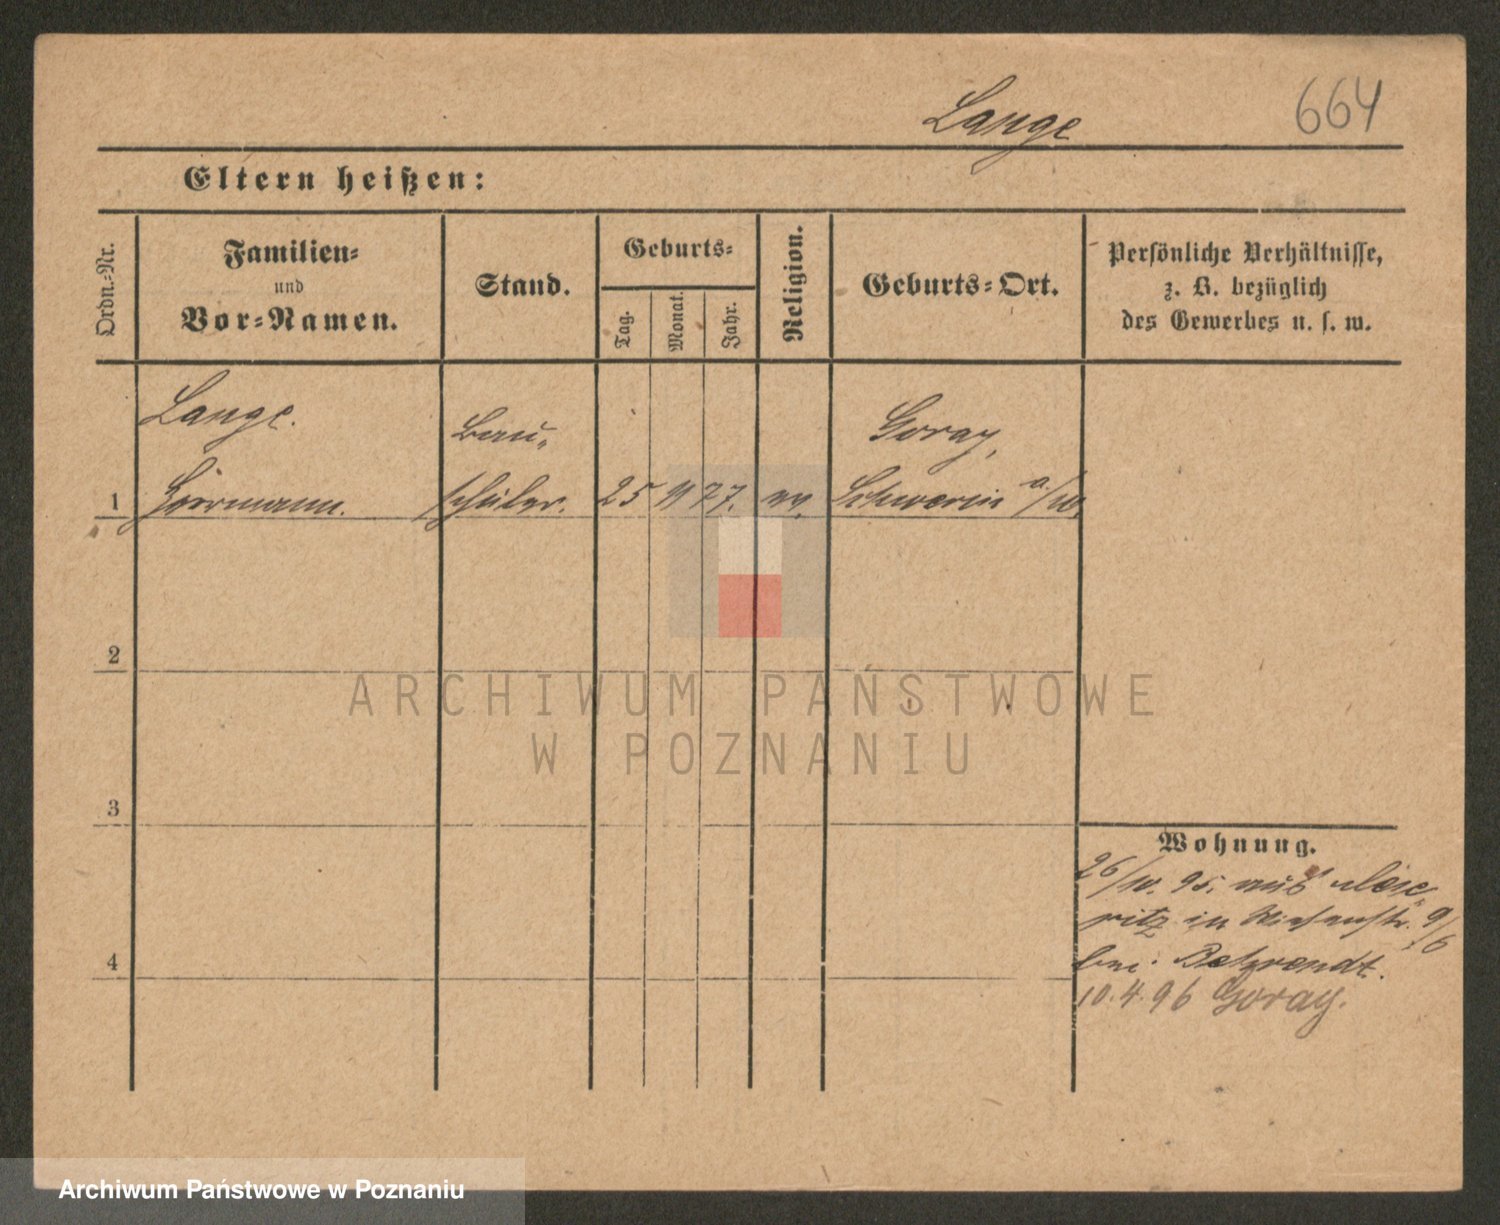 Lange 664
Eltern heißen:
Ordn.-Nr.
Familien-
und
Vor-Namen.
Stand.
Geburts-
Tag. Monat. Jahr.
Religion.
Geburts-Ort.
Persönliche Verhältnisse,
z. B. bezüglich
des Gewerbes u. s. w.
Lange. Bau- Goray,
1 Herrmann. schüler. 25 77. ev. Schwerin a/W.
2
3
4
Wohnung.
26/10. 95. aus Mese-
ritz in Wiesenstr. 9/6
bei Behrendt.
10.4.96 Goray.
ARCHIWUM PAŃSTWOWE
W POZNANIU
Archiwum Państwowe w Poznaniu